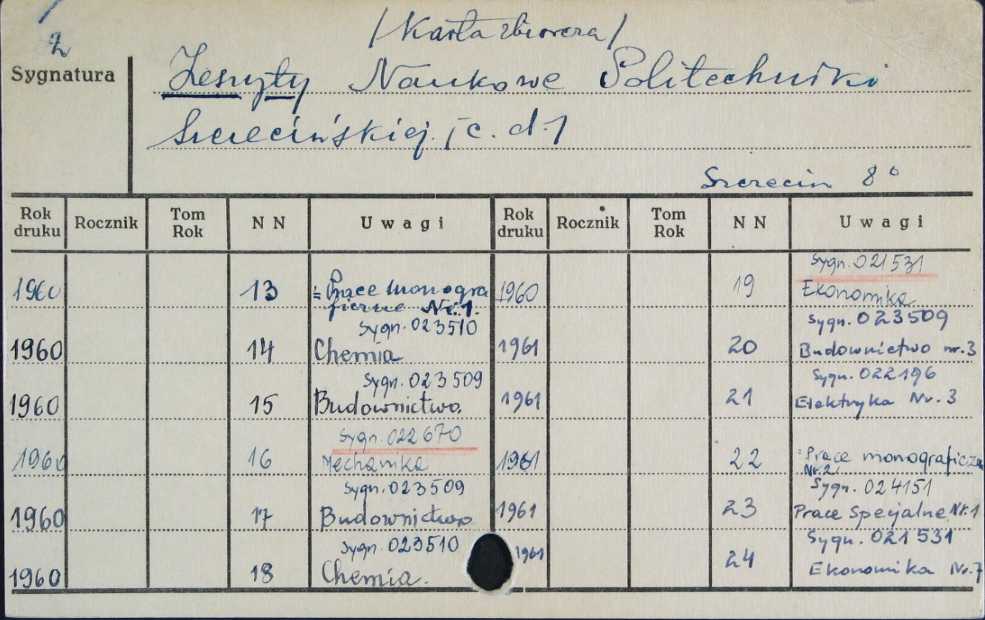 /Karta zbiorcza/
Z
Sygnatura
Zeszyty Naukowe Politechniki
Szczecińskiej. /c. d./
Szczecin 8°
Rok druku Rocznik Tom Rok NN Uwagi Rok druku Rocznik Tom Rok NN Uwagi
1960 13 = Prace monogra
ficzne Nr. 1.
Sygn. 023510
1960 14 Chemia
Sygn. 023509
1960 15 Budownictwo.
Sygn. 022670
1960 16 Mechanika
Sygn. 023509
1960 17 Budownictwo
Sygn. 023510
1960 18 Chemia.
Sygn. 021531
1960 19 Ekonomika
Sygn. 023509
1961 20 Budownictwo nr. 3
Sygn. 022196
1961 21 Elektryka Nr. 3
1961 22 Prace monograficzne
Nr. 2.
Sygn. 024151
1961 23 Prace Specjalne Nr. 1
Sygn. 021531
1961 24 Ekonomika Nr. 7